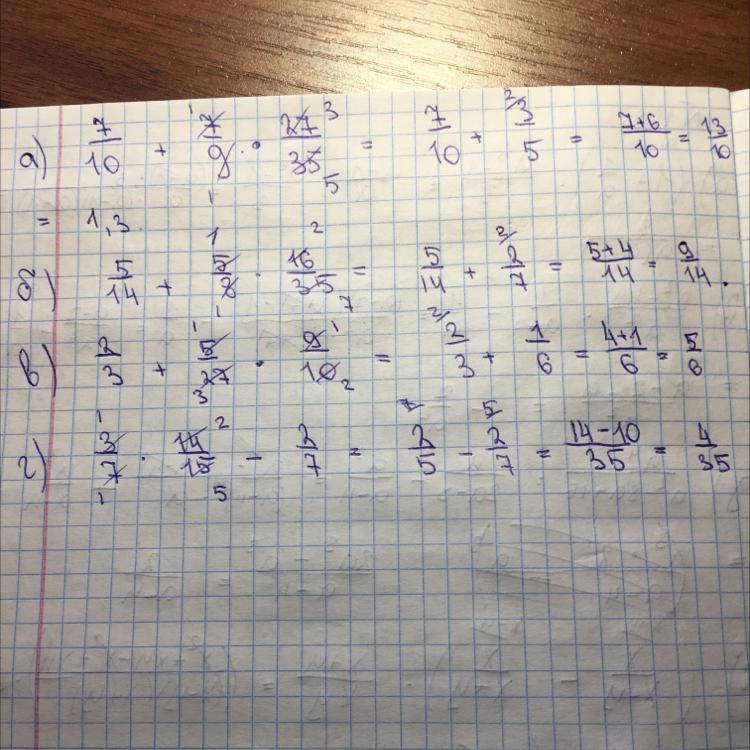 а) 7/10 + 7/9 · 27/35 = 7/10 + 3/5 = 7+6/10 = 13/10
= 1,3.
б) 5/14 + 5/8 · 16/35 = 5/14 + 2/7 = 5+4/14 = 9/14.
в) 2/3 + 5/27 · 9/10 = 2/3 + 1/6 = 4+1/6 = 5/6
г) 3/7 · 14/15 − 2/7 = 2/5 − 2/7 = 14−10/35 = 4/35